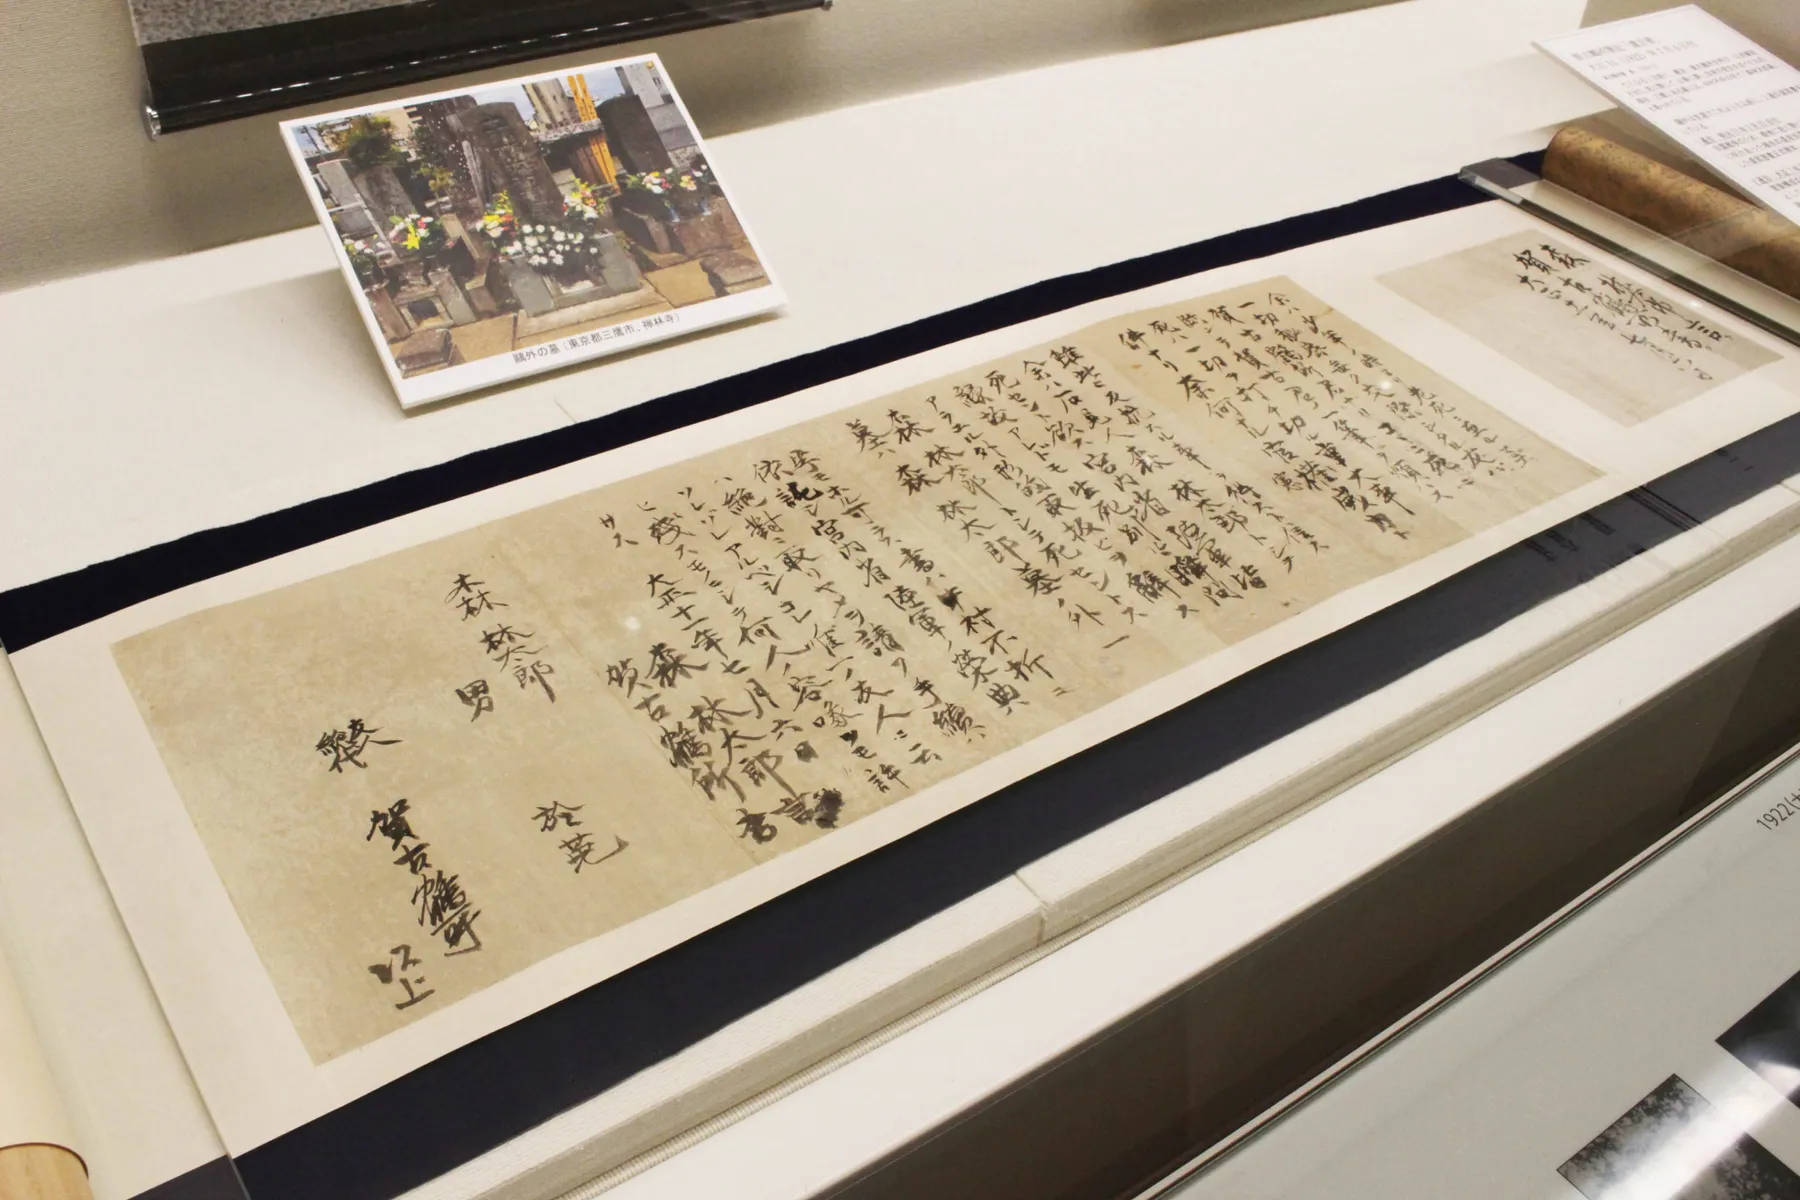 森林太郎言
賀古鶴所書
大正十一年七月六日
余ハ少年ノ時ヨリ老死ニ至ルマデ
一切秘密無ク交際シタル友ハ
賀古鶴所君ナリコヽニ死ニ
臨ンテ賀古君ノ一筆ヲ煩ハス
死ハ一切ヲ打チ切ル重大事
件ナリ奈何ナル官憲威力ト
雖此ニ反抗スル事ヲ得スト信ス
余ハ石見人森林太郎トシテ
死セント欲ス宮内省陸軍皆
縁故アレドモ生死別ルヽ瞬間
アラユル外形的取扱ヒヲ辭ス
森林太郎トシテ死セントス
墓ハ森林太郎墓ノ外一
字モホル可ラス書ハ中村不折ニ
依託シ宮内省陸軍ノ榮典
ハ絶對ニ取リヤメヲ請フ手續ハ
ソレゾレアルベシコレ唯一ノ友人ニ云
ヒ殘スモノニシテ何人ノ容喙ヲモ許
サス大正十一年七月六日
森林太郎言
賀古鶴所書
森林太郎
男 於菟
友人
總代 賀古鶴所
以上
鷗外の墓（東京都三鷹市、禅林寺）
1922